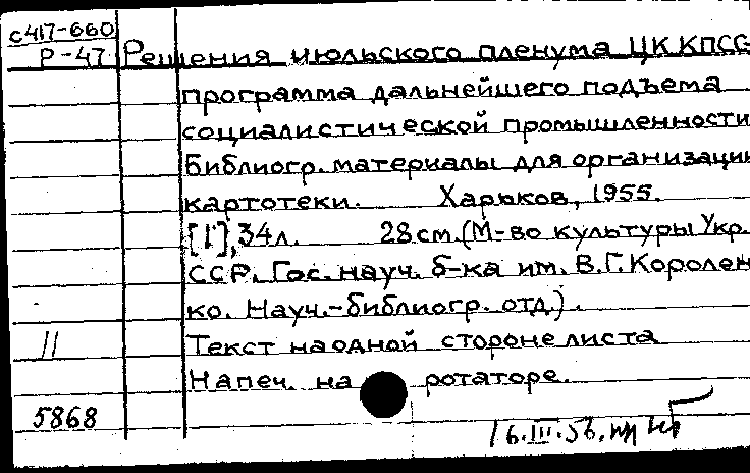 с417-660
Р-47 Решения июльского пленума ЦК КПСС-
программа дальнейшего подъема
социалистической промышленности
Библиогр. материалы для организации
картотеки. Харьков, 1955.
[1], 34 л. 28 см. (М-во культуры Укр.
ССР. Гос. науч. б-ка им. В.Г. Королен
ко. Науч.-библиогр. отд.).
11 Текст на одной стороне листа
Напеч. на ротаторе.
5868
16.III.56.